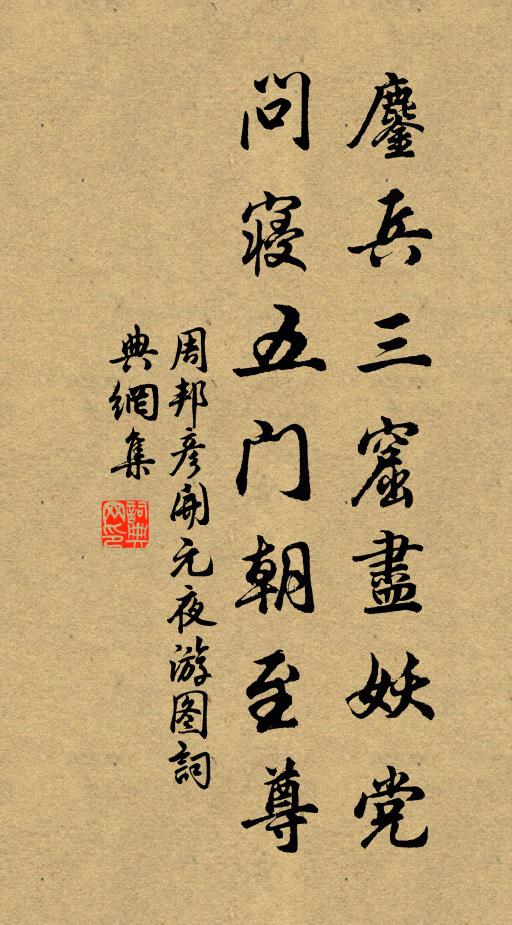 鏖兵三窟盡妖党
问寢五门朝至尊
周邦彦開元夜游图詞
典網集
詞典网印